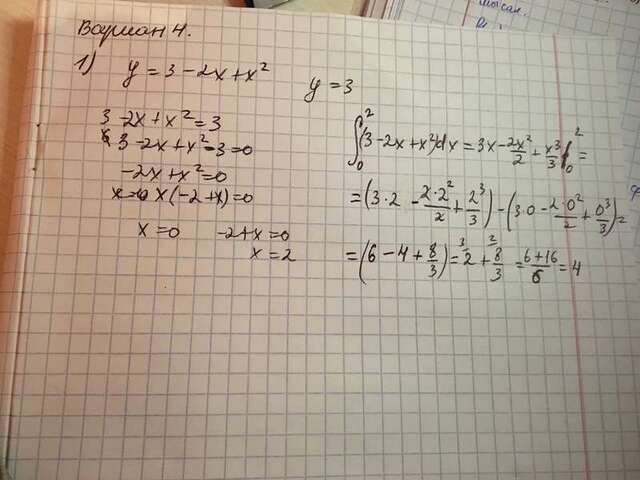 Вариан 4.
1) y = 3 - 2x + x² y = 3
3 - 2x + x² = 3
3 - 2x + x² - 3 = 0
-2x + x² = 0
x(-2 + x) = 0
x = 0 -2 + x = 0
x = 2
∫₀² (3 - 2x + x²)dx = 3x - 2x²/2 + x³/3 |₀² =
= (3·2 - 2·2²/2 + 2³/3) - (3·0 - 2·0²/2 + 0³/3) =
= (6 - 4 + 8/3) = 2 + 8/3 = 6+16/6 = 4